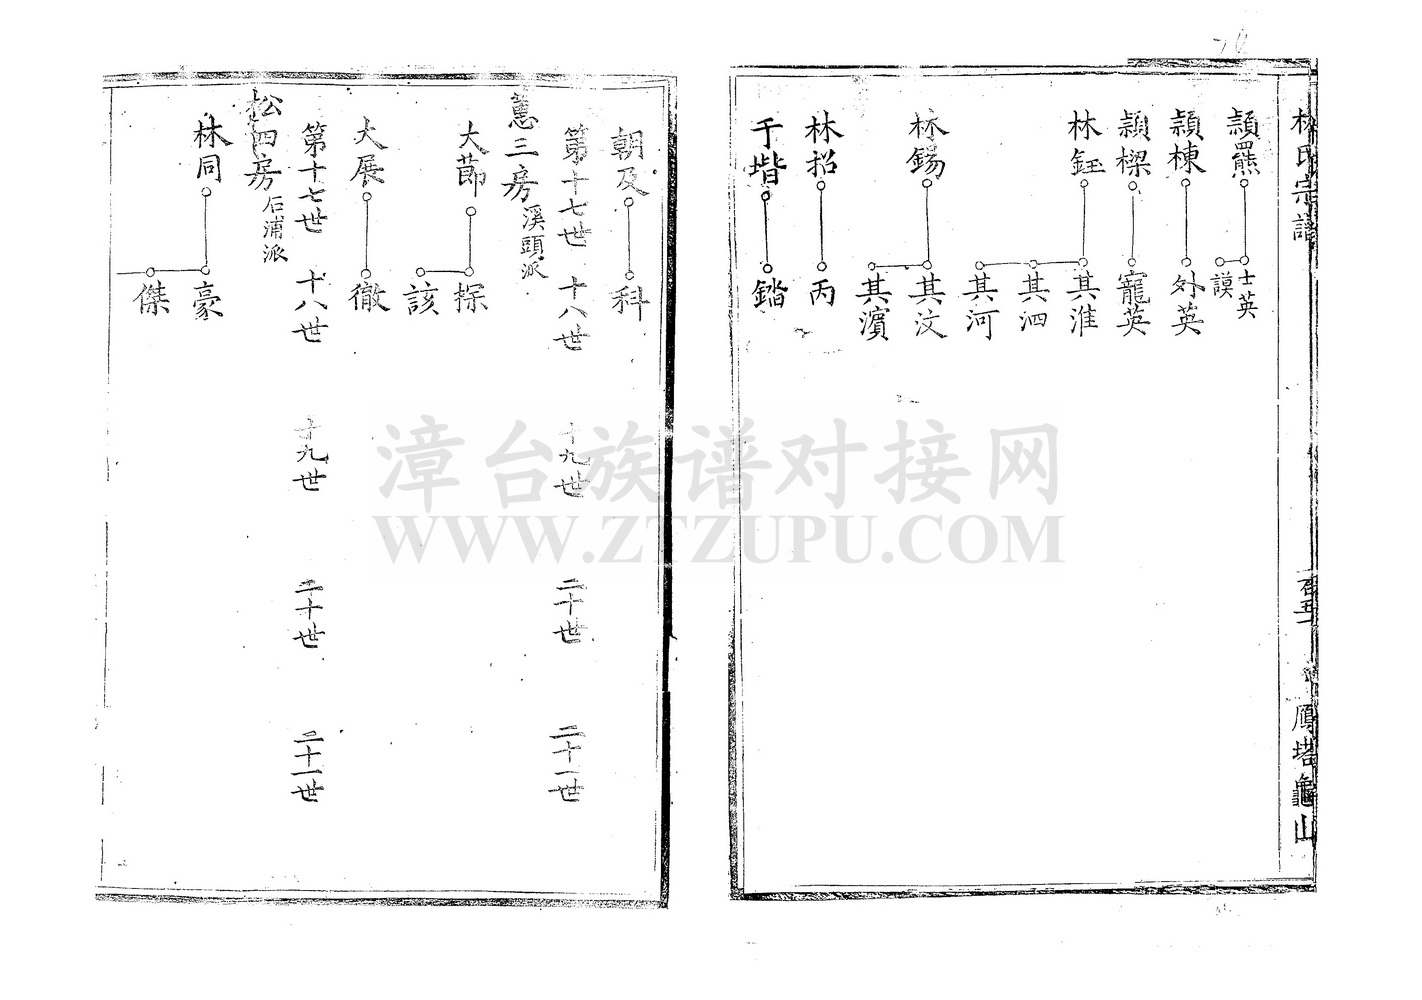 林氏宗譜
鳳塔龜山
顯羆
士英
謨
顯棟
外英
顯樑
寵英
林鈺
其淮
其泗
其河
林錫
其汶
其濱
林招
丙
千堦
錔
朝及
科
第十七世 十八世 十九世 二十世 二十一世
蕙三房 溪頭派
大節
探
該
大展
徹
第十七世 十八世 十九世 二十世 二十一世
松四房 石浦派
林同
豪
傑
漳台族谱对接网
WWW.ZTZUPU.COM